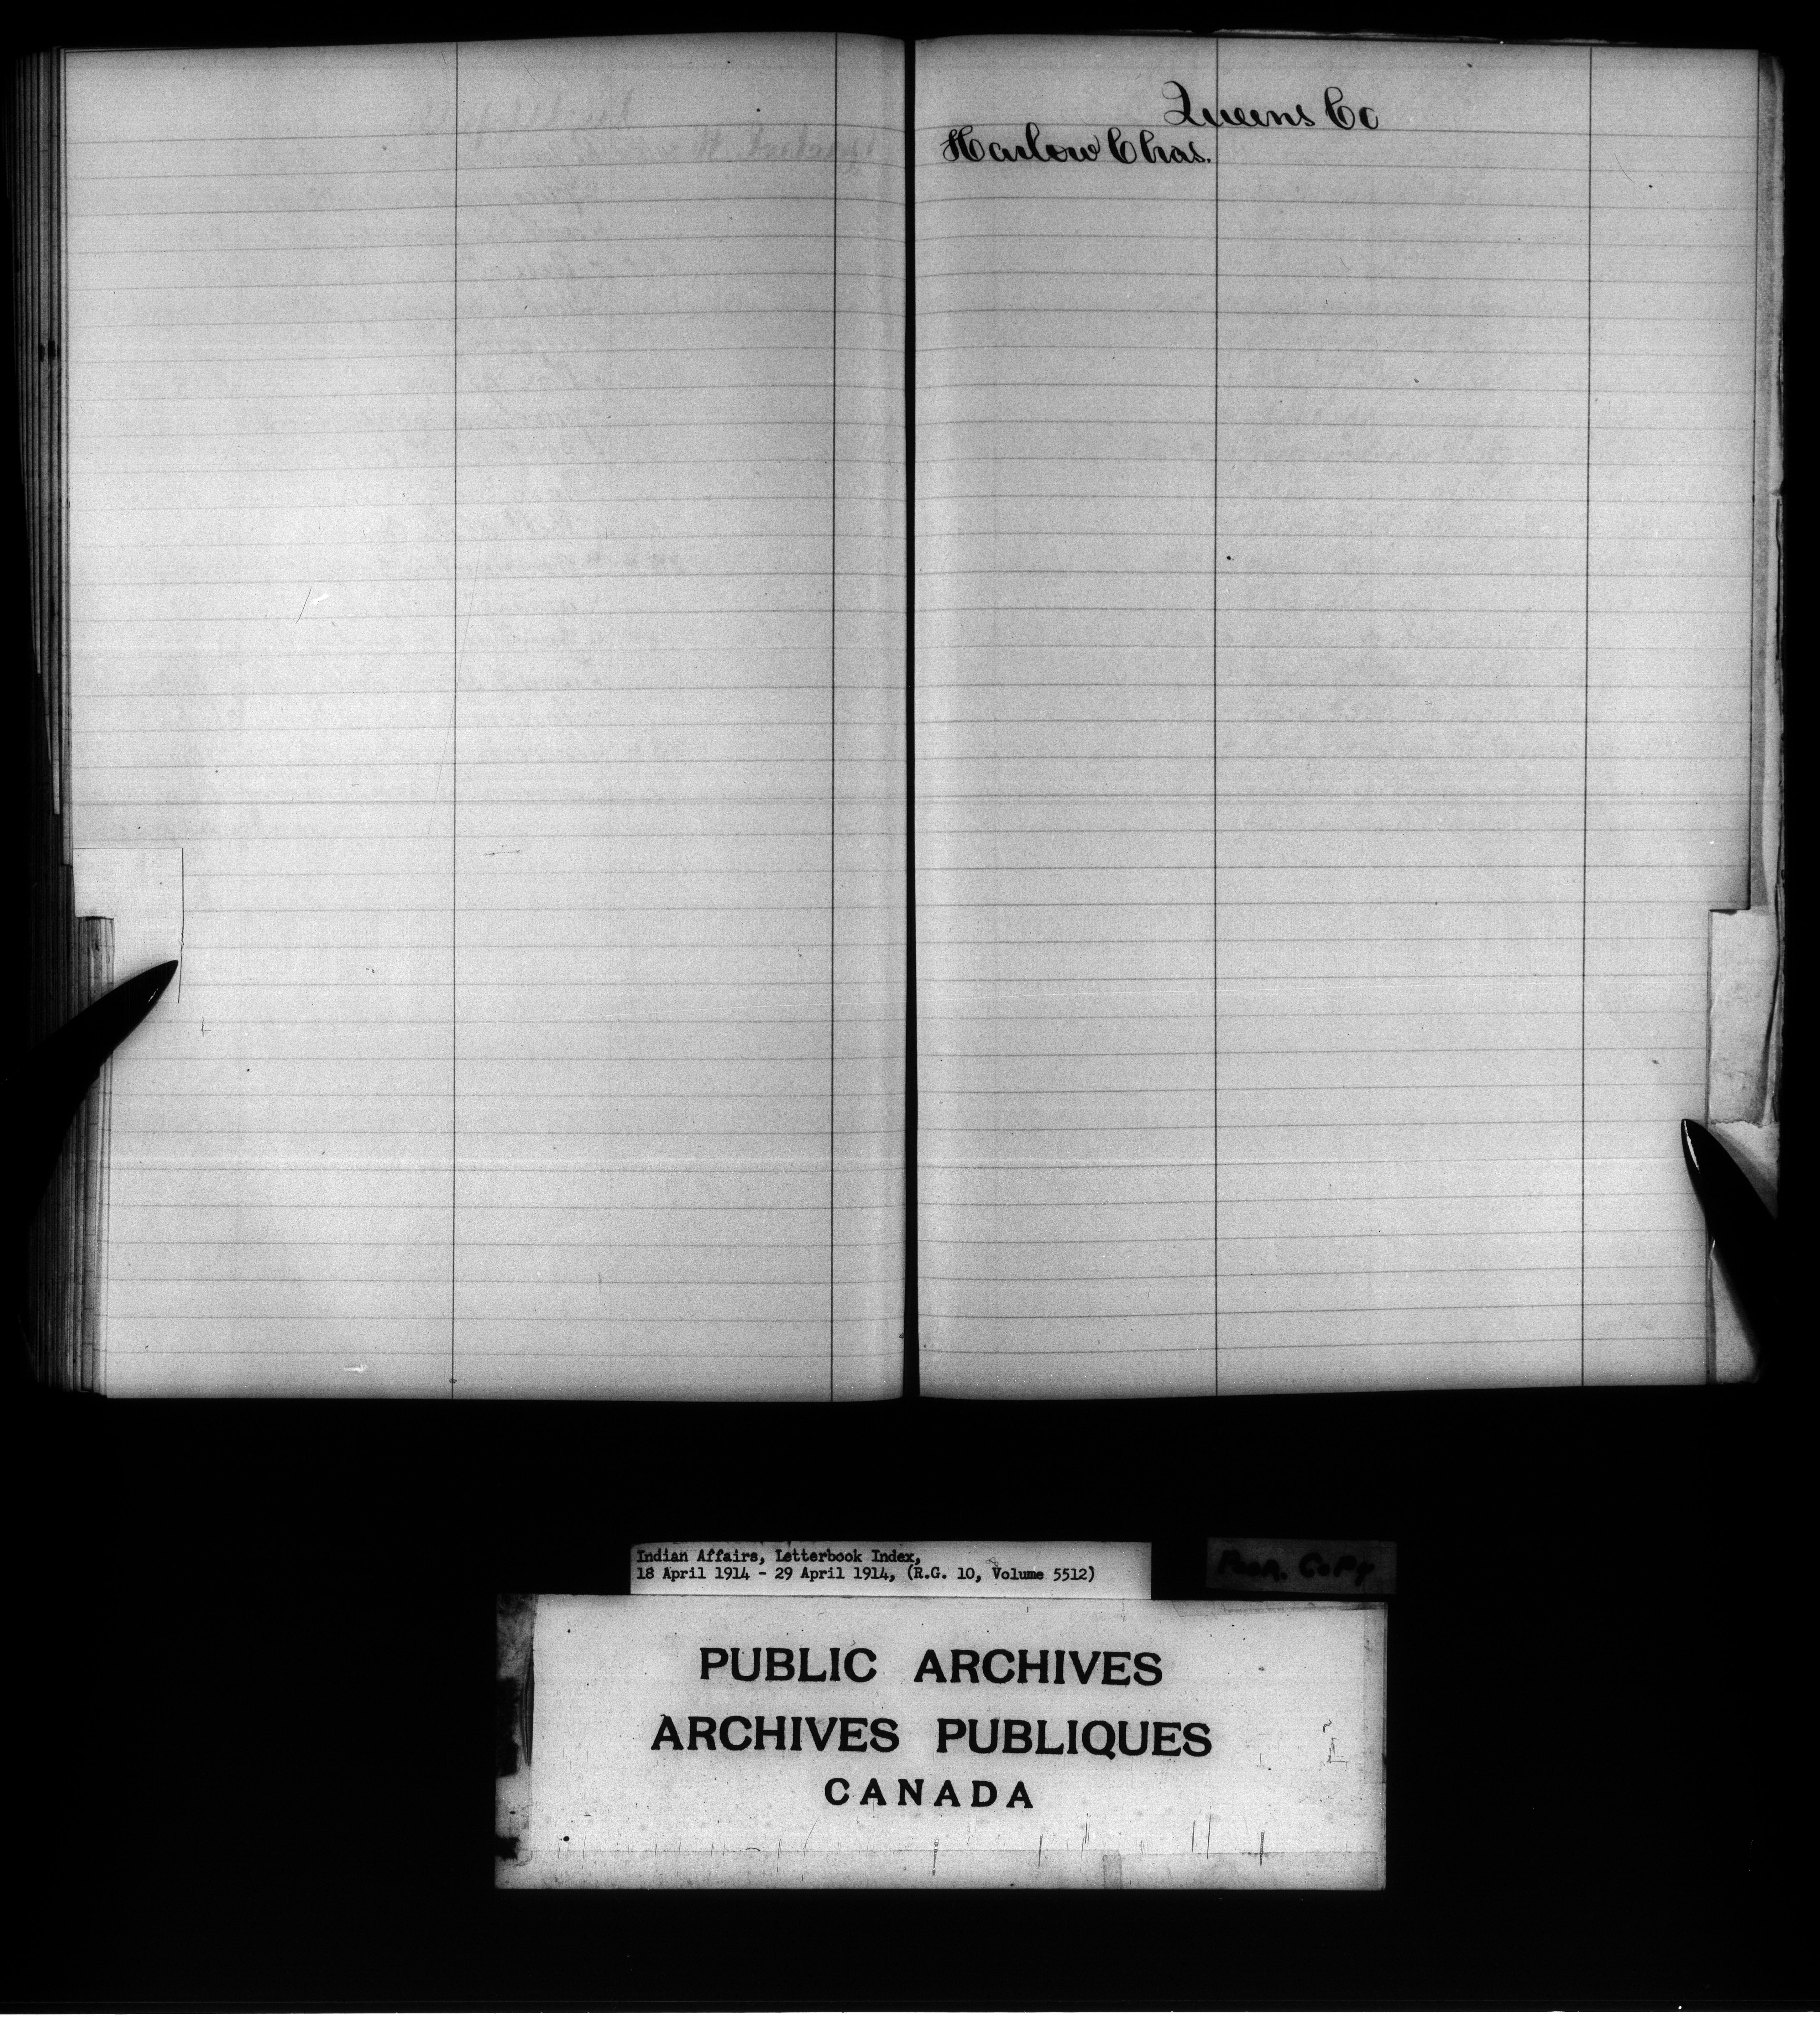 Queens Co
Harlow Chas.
Indian Affairs, Letterbook Index,
18 April 1914 - 29 April 1914, (R.G. 10, Volume 5512)
POOR. COPY
PUBLIC ARCHIVES
ARCHIVES PUBLIQUES
CANADA